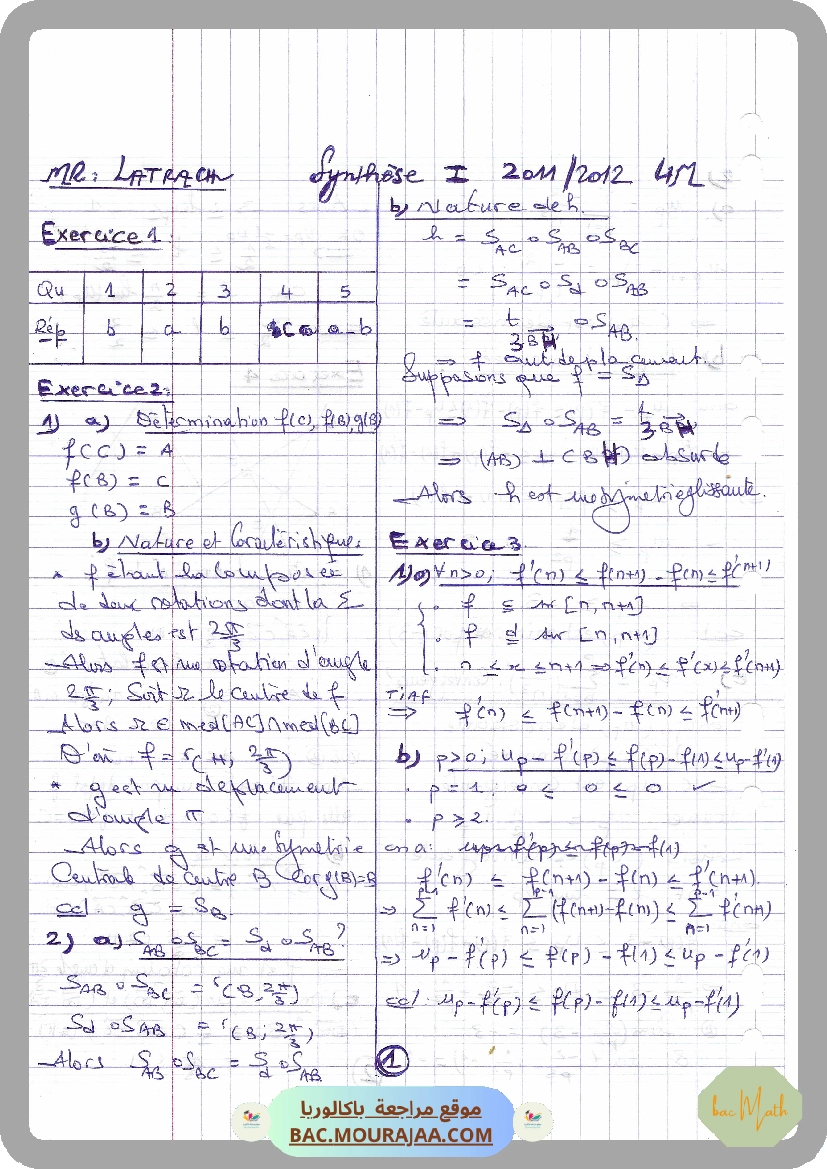 MR: LATRACH Synthèse I 2011/2012 4M
Exercice 1:
Qu 1 2 3 4 5
Rép b a b c a-b
Exercice 2:
1) a) Détermination f(C), f(B), g(B)
f(C) = A
f(B) = C
g(B) = B
b) Nature et Caractéristique:
* f étant la composée
de deux rotations dont la Σ
ds angles est 2π/3
Alors f est une rotation d'angle
2π/3; Soit Ω le centre de f
Alors Ω ∈ med[AC]∩med[BC]
D'où f = r(H; 2π/3)
* g est un déplacement
d'angle π
Alors g est une Symétrie
Centrale de centre B Car g(B)=B
ccl g = S_B
2) a) S_AB o S_BC = S_d o S_AB ?
S_AB o S_BC = r(B, 2π/3)
S_d o S_AB = r(B; 2π/3)
Alors S_AB o S_BC = S_d o S_AB
b) Nature de h.
h = S_AC o S_AB o S_BC
= S_AC o S_d o S_AB
= t_3BH o S_AB.
⇒ f antideplacement.
Supposons que f = S_Δ
⇒ S_Δ o S_AB = t_3BH
⇒ (AB) ⊥ (BH) absurde
Alors h est une symetrie glissante.
Exercice 3
1) a) ∀n>0; f'(n) ≤ f(n+1) - f(n) ≤ f'(n+1)
. f c sur [n, n+1]
. f d sur [n, n+1]
. n ≤ x ≤ n+1 ⇒ f'(n) ≤ f'(x) ≤ f'(n+1)
T.i.A.f
⇒ f'(n) ≤ f(n+1) - f(n) ≤ f'(n+1)
b) p>0; u_p - f'(p) ≤ f(p) - f(1) ≤ u_p - f'(1)
. p = 1; 0 ≤ 0 ≤ 0 ✓
. p ≥ 2.
on a: u_p - f'(p) ≤ f(p) - f(1)
f'(n) ≤ f(n+1) - f(n) ≤ f'(n+1)
⇒ Σ_{n=1}^{p-1} f'(n) ≤ Σ_{n=1}^{p-1} (f(n+1)-f(n)) ≤ Σ_{n=1}^{p-1} f'(n+1)
⇒ u_p - f'(p) ≤ f(p) - f(1) ≤ u_p - f'(1)
ccl: u_p - f'(p) ≤ f(p) - f(1) ≤ u_p - f'(1)
1
موقع مراجعة باكالوريا
BAC.MOURAJAA.COM
bac Math